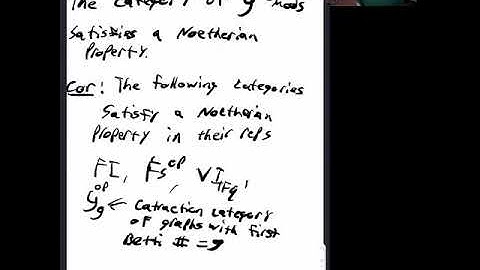 The category of g -mods
Satisfies a Noetherian
Property.
Cor: The following categories
Satisfy a Noetherian
Property in their reps
FI, FS^op, VI_Fq,
g_g^op ← Contraction category
of graphs with first
Betti # = g